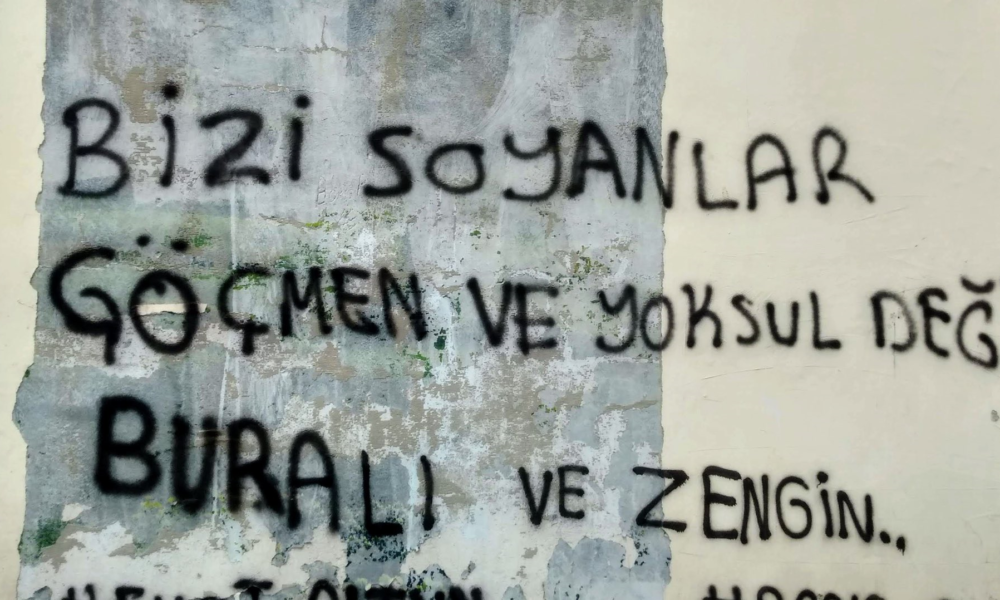 BİZİ SOYANLAR
GÖÇMEN VE YOKSUL DEĞ
BURALI VE ZENGİN..